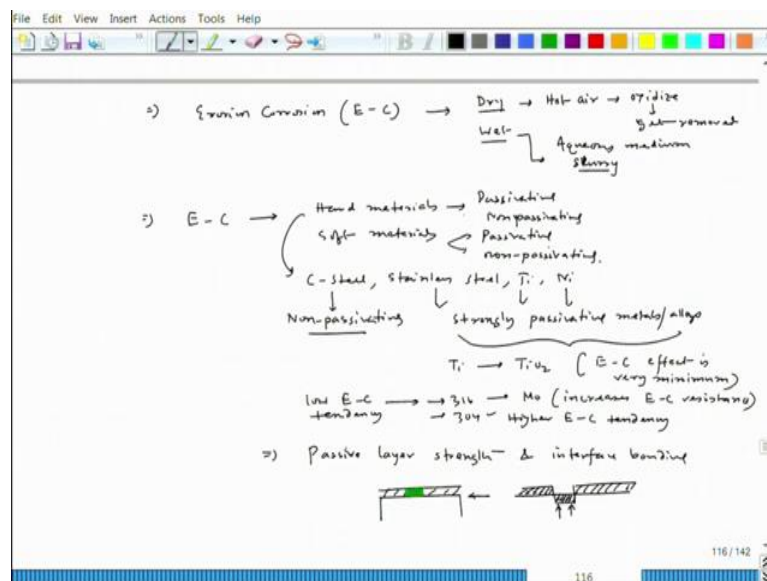 File Edit View Insert Actions Tools Help
B I
⇒) Erosion Corrosion (E-C) → Dry → Hot air → oxidize
↓
get removed
Wet
→ Aqueous medium
slurry
⇒) E-C → Hard materials → Passivative
Nonpassivating
Soft materials < Passivative
non-passivating.
C-Steel, Stainless steel, Ti, Ni
↓ ↓ ↓ ↓
Non-passivating Strongly passivative metals/alloys
Ti → TiO2 (E-C effect is
very minimum)
low E-C → → 316 → Mo (increases E-C resistance)
tendency → 304 - Higher E-C tendency
⇒) Passive layer strength & interface bonding
116 / 142
116